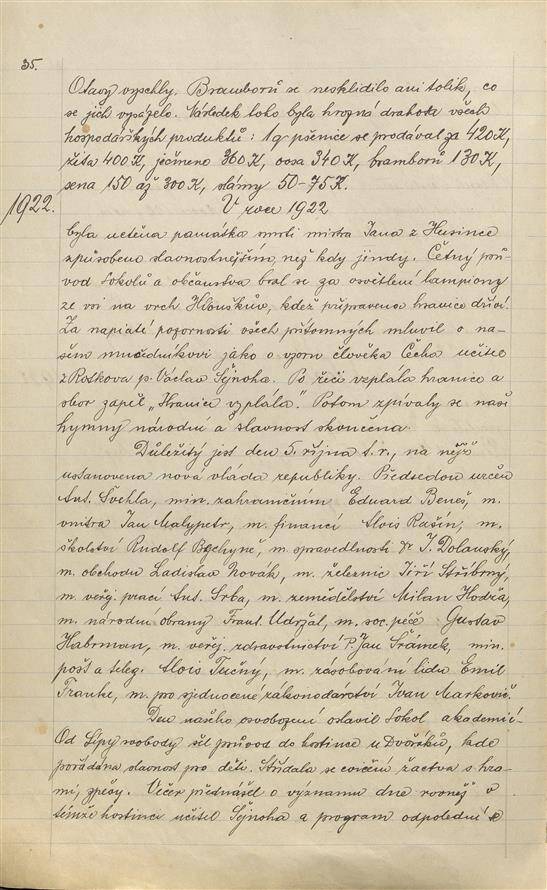 35.
Otavy vyschly. Bramborů se nesklidilo ani tolik, co
se jich vysázelo. Následek toho byla hrozná drahota všech
hospodářských produktů: 1q pšenice se prodával za 420 K,
žita 400 K, ječmene 360 K, ovsa 340 K, bramborů 130 K,
sena 150 až 300 K, slámy 50-75 K.
1922.
V roce 1922
byla uctěna památka smrti mistra Jana z Husince
způsobem slavnostnějším, než kdy jindy. Četný prů-
vod Sokolů a občanstva bral se za osvětlení lampiony
ze vsi na vrch Hlouškův, kdež připravena hranice dříví.
Za napiaté pozornosti všech přítomných mluvil o na-
šem mučedníkovi jako o vzoru člověka Čecha učitel
z Roškova p. Václav Šejnoha. Po řeči vzplála hranice a
sbor zapěl "Hranice vzplála". Potom zpívaly se naše
hymny národní a slavnost skončena.
Důležitý jest den 5. října t. r., na nějž
ustanovena nová vláda republiky. Předsedou určen
Ant. Švehla, min. zahraničním Eduard Beneš, m.
vnitra Jan Malypetr, m. financí Alois Rašín, m.
školství Rudolf Bechyně, m. spravedlnosti Dr J. Dolanský,
m. obchodu Ladislav Novák, m. železnic Jiří Stříbrný,
m. veřej. prací Ant. Srba, m. zemědělství Milan Hodža,
m. národní obrany Frant. Udržal, m. soc. péče Gustav
Habrman, m. veřej. zdravotnictví P. Jan Šrámek, min.
pošt a teleg. Alois Tučný, m. zásobování lidu Emil
Franke, m. pro sjednocení zákonodárství Ivan Markovič.
Den našeho osvobození oslavil Sokol akademií.
Od Lípy svobody šel průvod do hostince u Dvořáků, kde
pořádána slavnost pro děti. Střídala se cvičení žactva s hra-
mi, zpěvy. Večer přednášel o významu dne rovněž v
témže hostinci učitel Šejnoha a program odpolední se